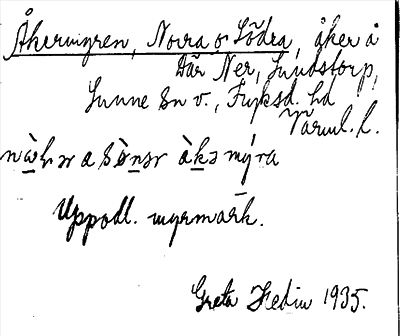 Åkermyren, Norra o Södra, åker å
Där Ner, Sundstorp,
Sunne sn v., Fryksd. hd
Värml. l.
åkə mýra
Uppodl. myrmark.
Greta Hedin 1935.